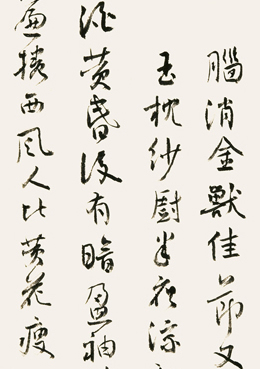 腦消金獸佳節又
玉枕紗厨半夜涼
酒黄昏後有暗盈袖
簾捲西風人比黄花瘦